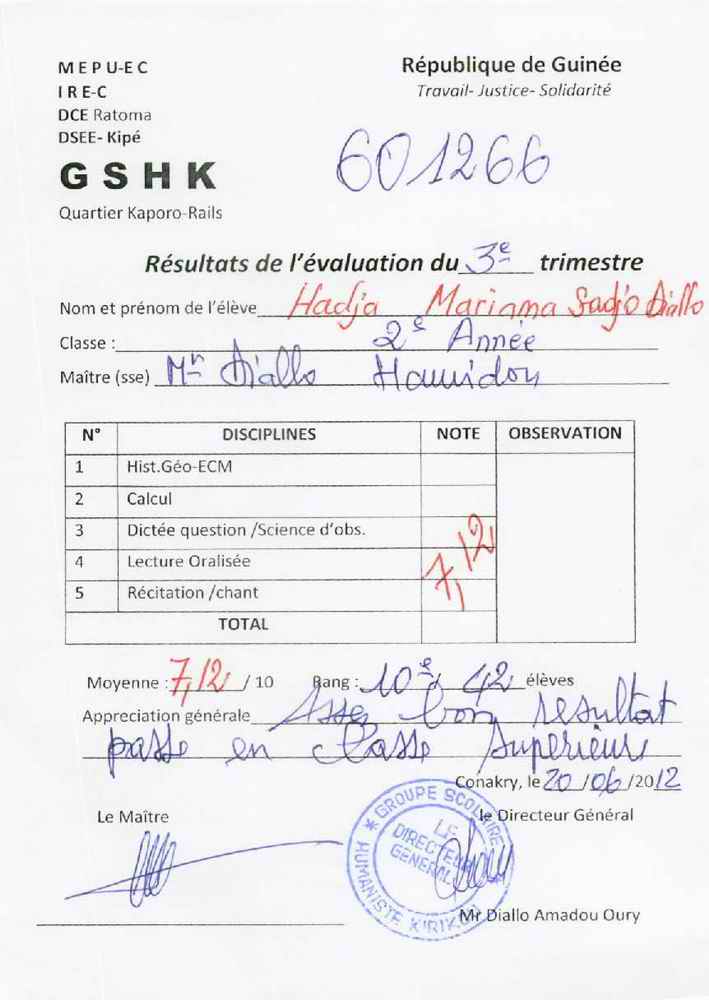 MEPU-EC
IRE-C
DCE Ratoma
DSEE- Kipé
GSHK
Quartier Kaporo-Rails
République de Guinée
Travail- Justice- Solidarité
601266
Résultats de l'évaluation du 3e trimestre
Nom et prénom de l'élève Hadja Mariama Sadjo Diallo
Classe : 2e Année
Maître (sse) Mr Diallo Hamidou
N° DISCIPLINES NOTE OBSERVATION
1 Hist.Géo-ECM
2 Calcul
3 Dictée question /Science d'obs.
4 Lecture Oralisée
5 Récitation /chant
7,12
TOTAL
Moyenne : 7,12 / 10 Rang : 10e / 42 élèves
Appreciation générale Assez bon résultat
passe en classe Supérieure
Conakry, le 20 /06 /2012
Le Maître
le Directeur Général
GROUPE SCOLAIRE
HUMANISTE KIRIKOU
LE
DIRECTEUR
GENERAL
Mr Diallo Amadou Oury